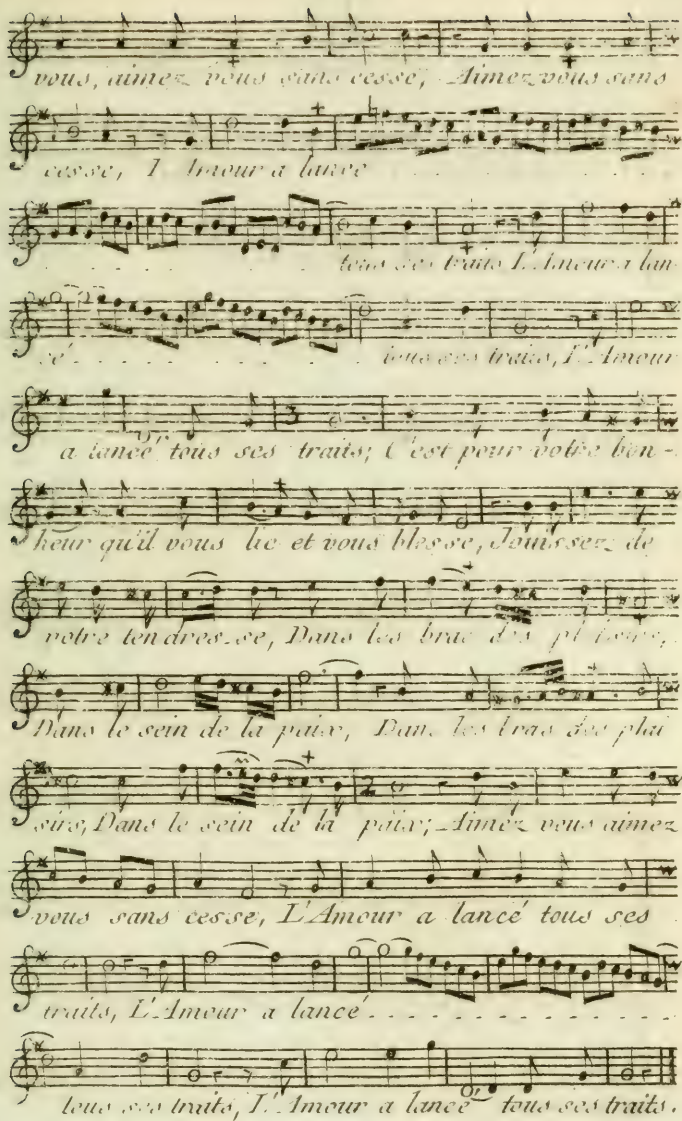 vous, aimez vous sans cesse, Aimez vous sans
cesse, L'Amour a lancé
tous ses traits L'Amour a lan-
cé . . . . . tous ses traits, L'Amour
a lancé tous ses traits; C'est pour votre bon-
heur qu'il vous lie et vous blesse, Jouissez de
votre tendres-se, Dans les bras des plaisirs,
Dans le sein de la paix, Dans les bras des plai
sirs, Dans le sein de la paix; Aimez vous aimez
vous sans cesse, L'Amour a lancé tous ses
traits, L'Amour a lancé . . . . . . . . . . .
tous ses traits, L'Amour a lancé tous ses traits.